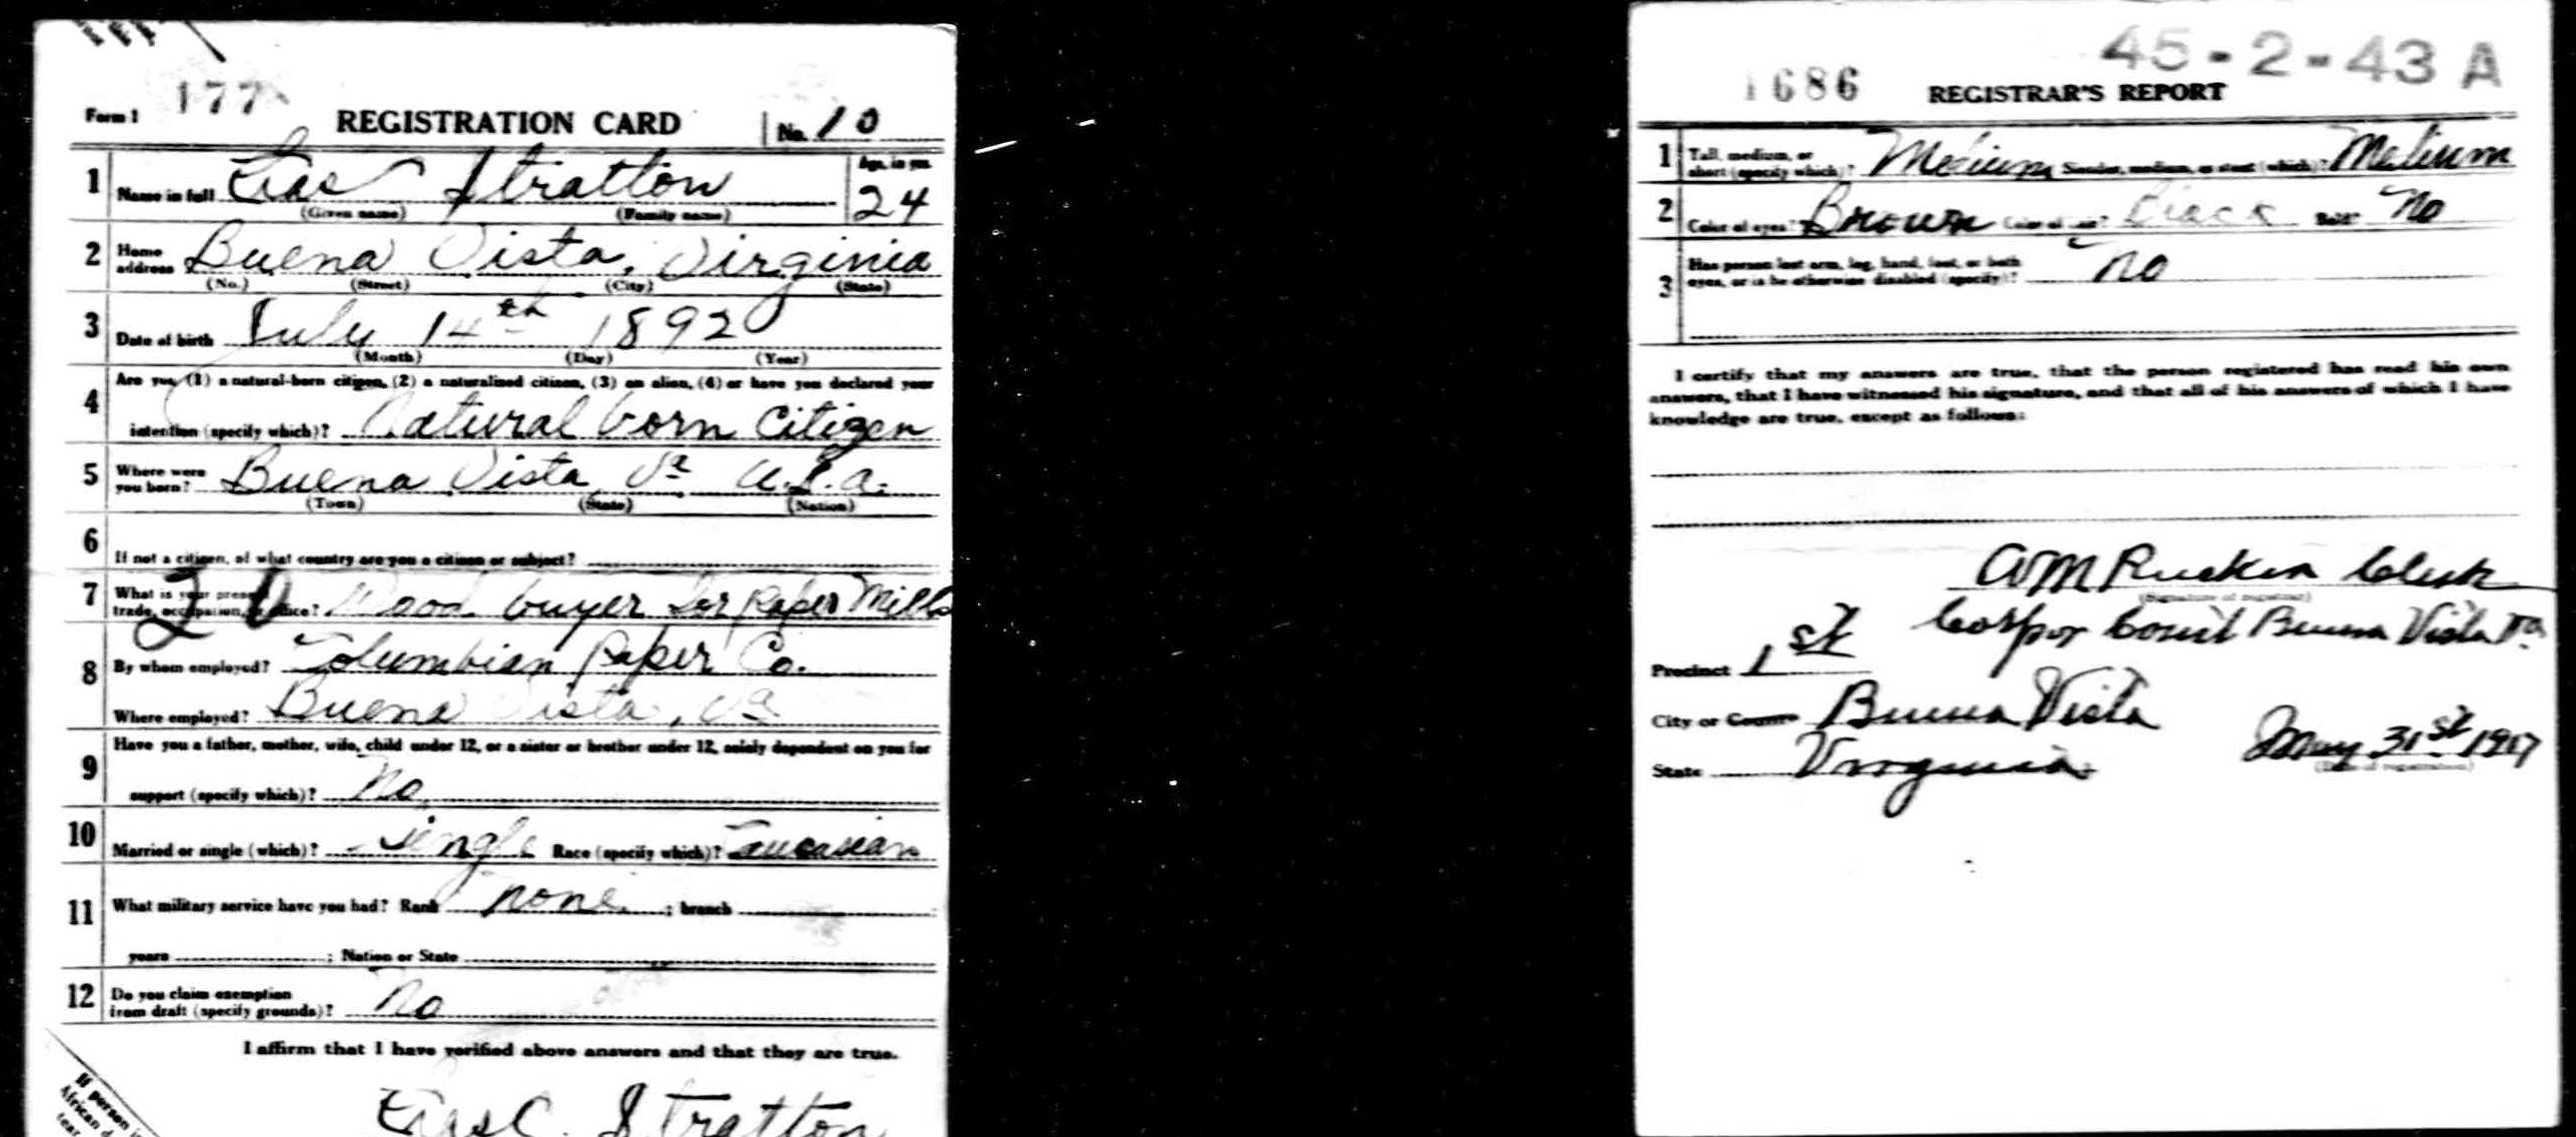 177
Form 1 REGISTRATION CARD No. 10
1 Name in full Stratton Age, in yrs. 24
(Given name) (Family name)
2 Home address Buena Vista, Virginia
(No.) (Street) (City) (State)
3 Date of birth July 14th 1892
(Month) (Day) (Year)
4 Are you (1) a natural-born citizen, (2) a naturalized citizen, (3) an alien, (4) or have you declared your
intention (specify which)? Natural born Citizen
5 Where were you born? Buena Vista Va U.S.A.
(Town) (State) (Nation)
6 If not a citizen, of what country are you a citizen or subject?
7 What is your present trade, occupation, or office? Wood buyer for Paper Mills
20
8 By whom employed? Columbian Paper Co.
Where employed? Buena Vista, Va
9 Have you a father, mother, wife, child under 12, or a sister or brother under 12, solely dependent on you for
support (specify which)? No
10 Married or single (which)? Single Race (specify which)? Caucasian
11 What military service have you had? Rank none ; branch
years ; Nation or State
12 Do you claim exemption from draft (specify grounds)? No
I affirm that I have verified above answers and that they are true.
Stratton
If person
African
tear
45-2-43 A
1686 REGISTRAR'S REPORT
1 Tall, medium, or short (specify which)? Medium Slender, medium, or stout (which)? Medium
2 Color of eyes? Brown Color of hair? Black Bald? No
3 Has person lost arm, leg, hand, foot, or both eyes, or is he otherwise disabled (specify)? No
I certify that my answers are true, that the person registered has read his own
answers, that I have witnessed his signature, and that all of his answers of which I have
knowledge are true, except as follows:
Clerk
(Signature of registrar)
Corpor Court Buena Vista Va
Precinct 1st
City or County Buena Vista
May 31st 1917
(Date of registration)
State Virginia